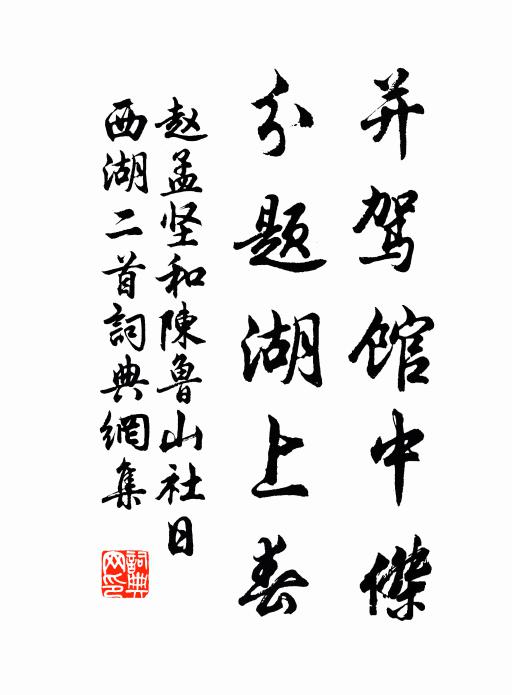 并驾馆中傑
分题湖上春
赵孟坚和陳魯山社日
西湖二首詞典網集
詞典
网印